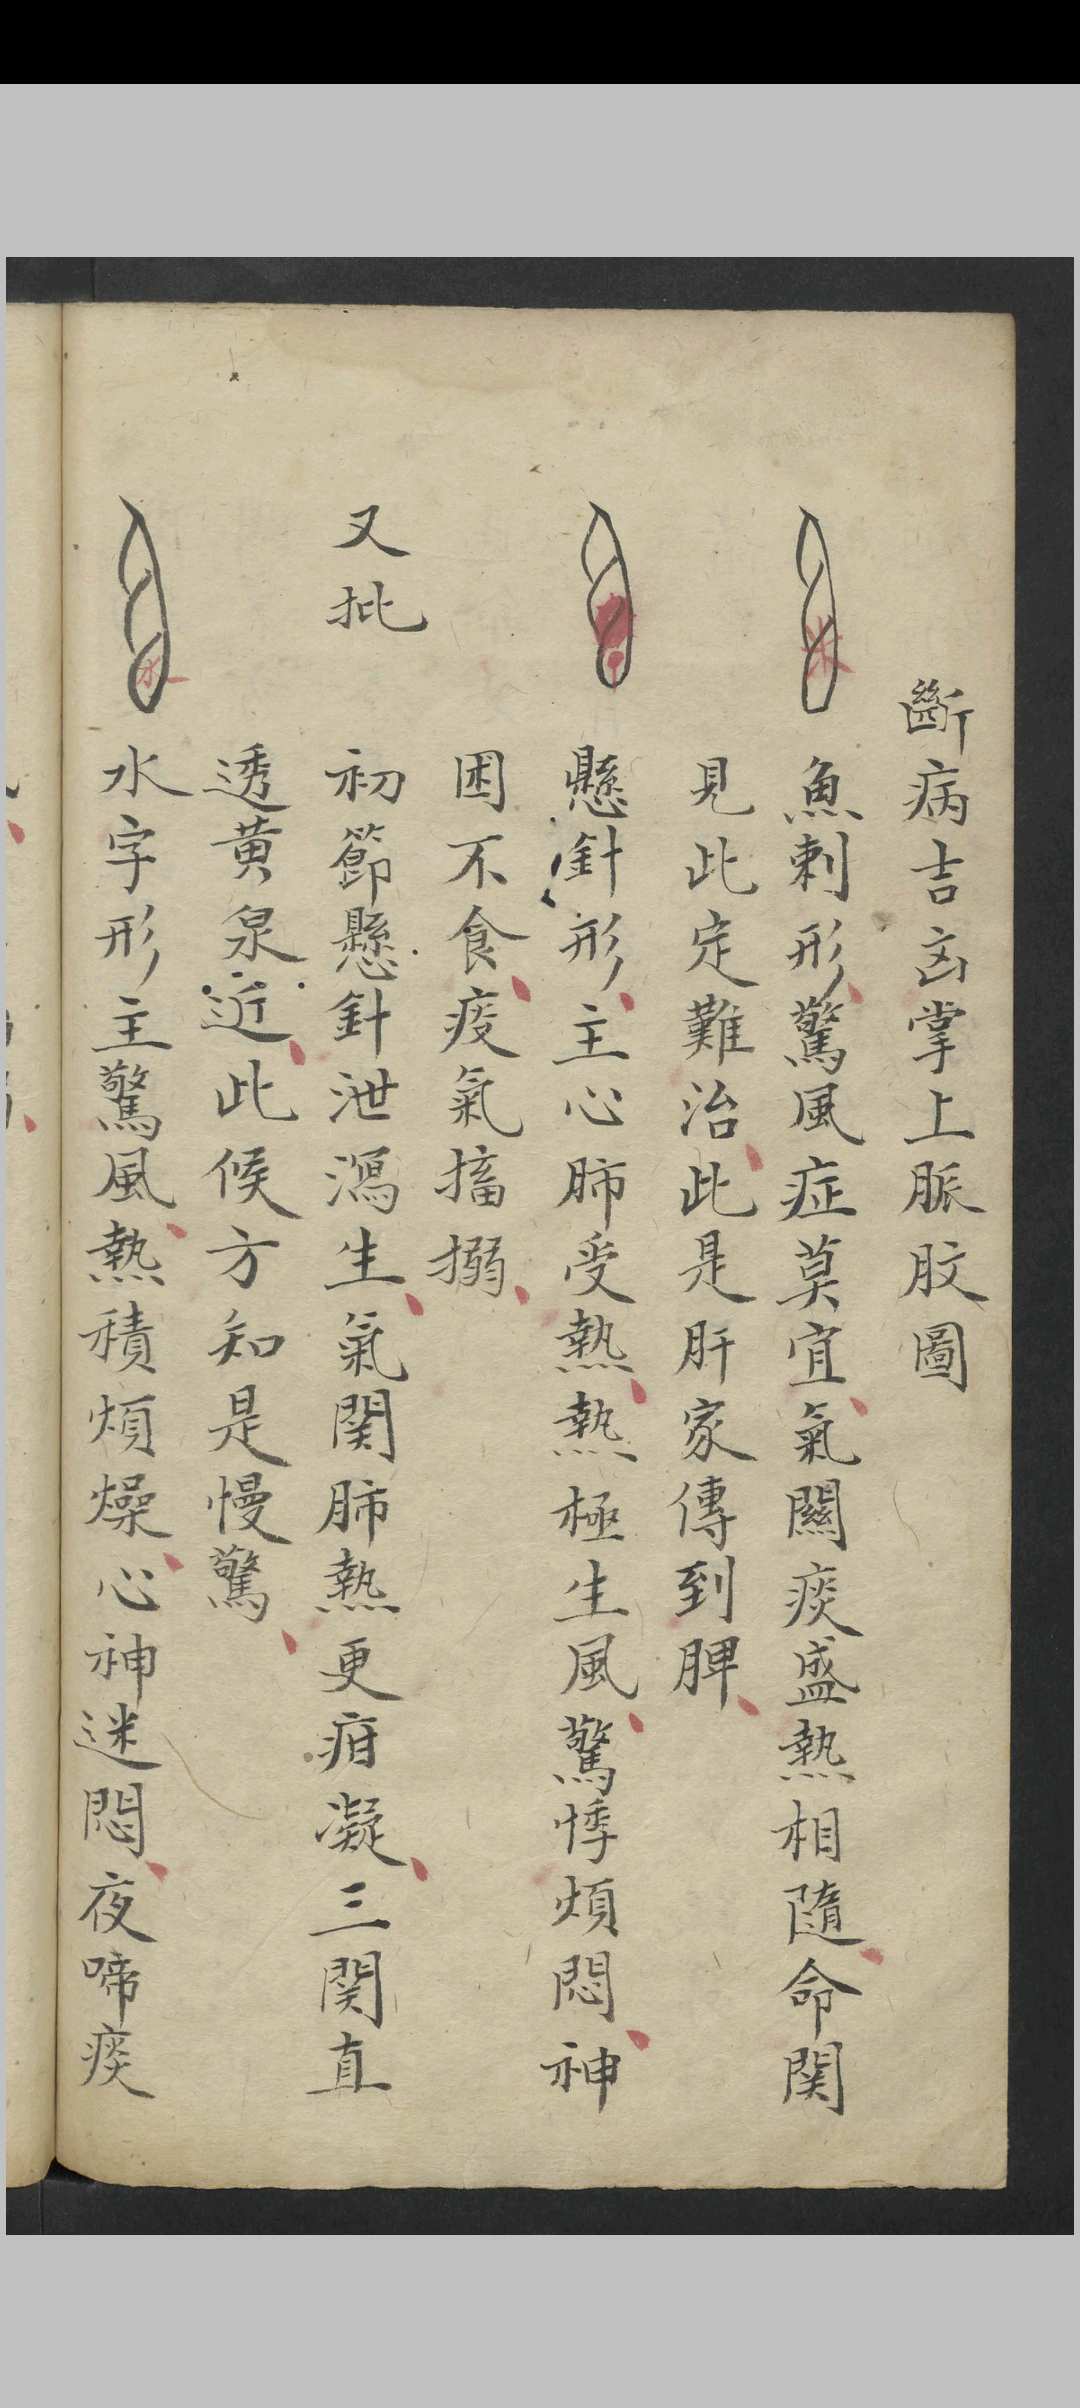 斷病吉凶掌上脈胶圖
魚刺形驚風症莫宜氣關痰盛熱相隨命関
見此定難治此是肝家傳到脾
懸針形主心肺受熱熱極生風驚悸煩悶神
困不食疫氣搐搦
又批
初節懸針泄瀉生氣関肺熱更疳凝三関直
透黄泉近此候方知是慢驚
水字形主驚風熱積煩燥心神迷悶夜啼痰